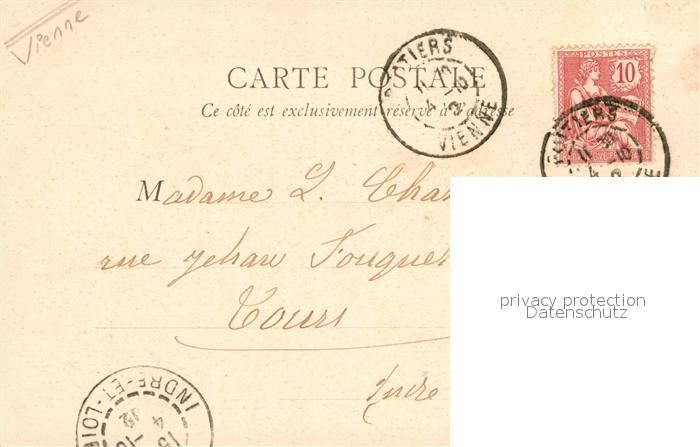 Vienne
CARTE POSTALE
Ce côté est exclusivement réservé à l'adresse
POITIERS
VIENNE
POSTES
10
POITIERS
Madame L. Cha
rue Jehan Fouquet
Tours
Indre
INDRE-ET-LOI
privacy protection
Datenschutz